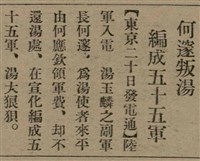 何遂叛湯
編成五十五軍
【東京二十日發電通】陸
軍入電　湯玉麟之副軍
長何遂。爲湯使者來平
由何應欽領軍費、却不
還湯處、在宣化編成五
十五軍、湯大狼狽。